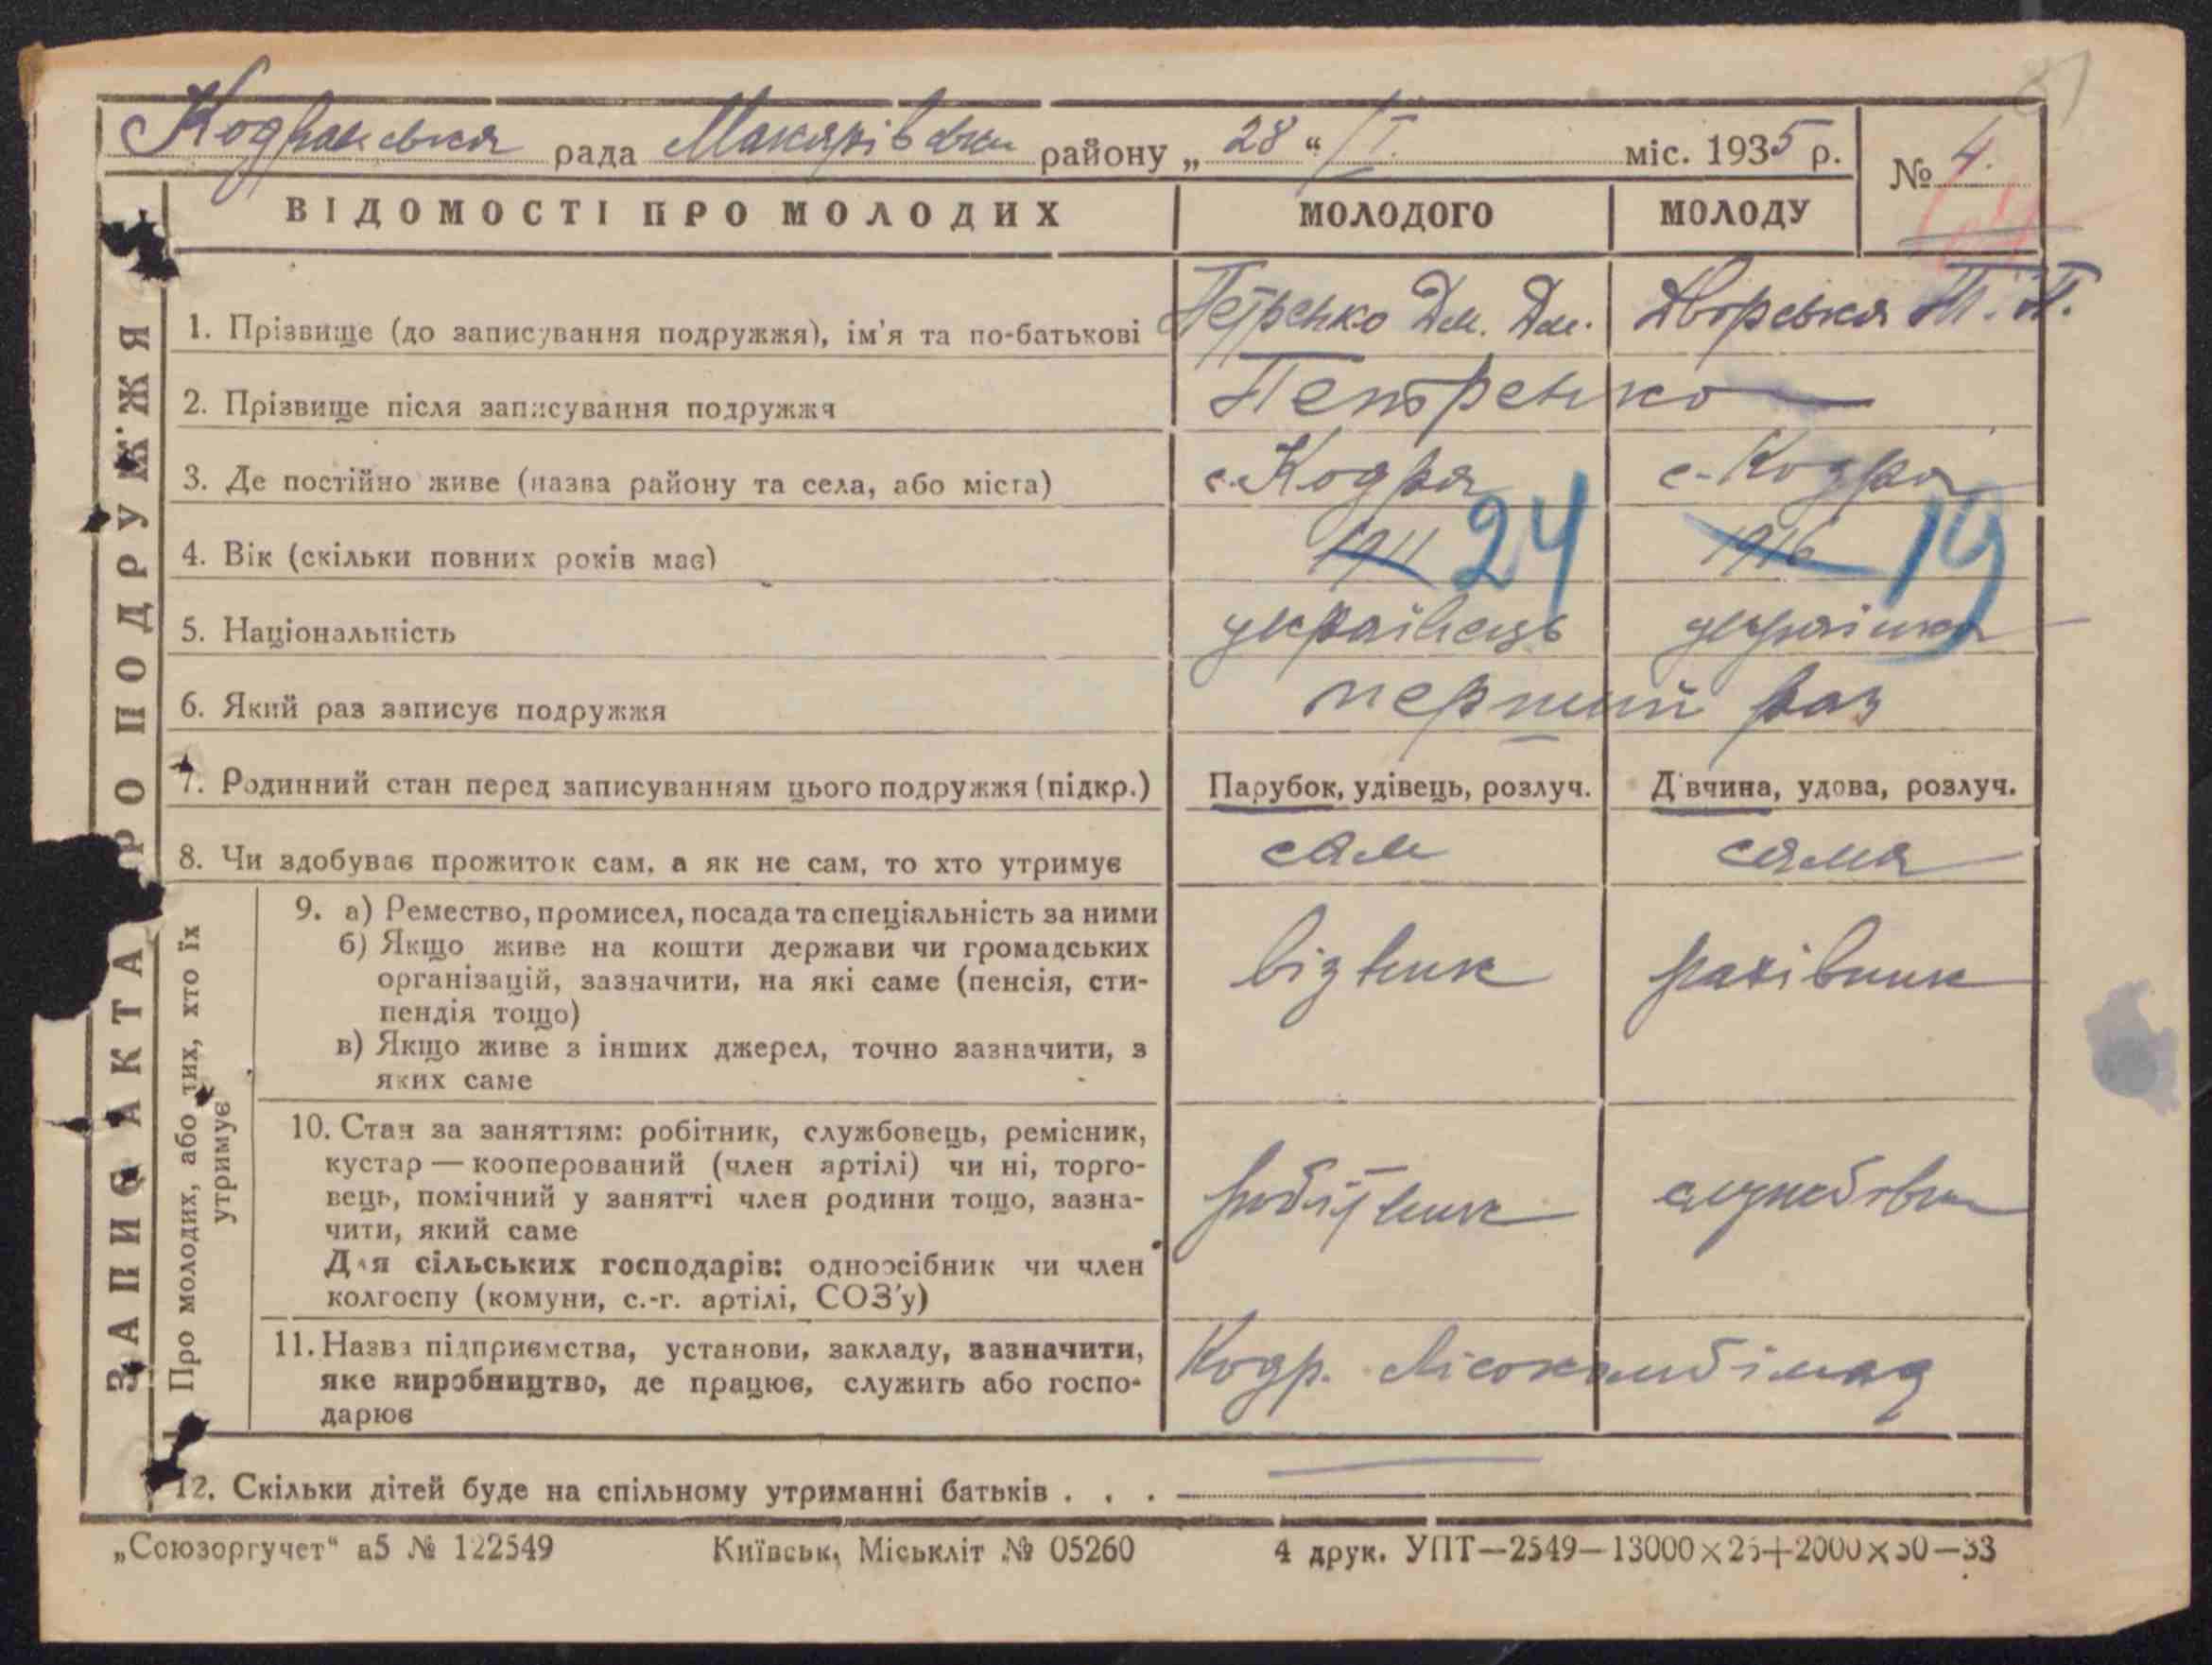 Кодранська рада Макарівськ району „ 28 “ I міс. 1935 р.
№ 4.
ВІДОМОСТІ ПРО МОЛОДИХ МОЛОДОГО МОЛОДУ
ЗАПИС АКТА ПРО ПОДРУЖЖЯ
1. Прізвище (до записування подружжя), ім'я та по-батькові Петренко Дм. Дм. Дворська
2. Прізвище після записування подружжя Петренко
3. Де постійно живе (назва району та села, або міста) с. Кодра с. Кодра
4. Вік (скільки повних років має) 1911 24 1916 19
5. Національність українець українка
6. Який раз записує подружжя перший раз
7. Родинний стан перед записуванням цього подружжя (підкр.) Парубок, удівець, розлуч. Дівчина, удова, розлуч.
8. Чи здобуває прожиток сам, а як не сам, то хто утримує сам сама
Про молодих, або тих, хто їх
утримує
9. а) Ремество, промисел, посада та спеціальність за ними
б) Якщо живе на кошти держави чи громадських
організацій, зазначити, на які саме (пенсія, сти-
пендія тощо)
в) Якщо живе з інших джерел, точно зазначити, з
яких саме
візник рахівник
10. Стан за заняттям: робітник, службовець, ремісник,
кустар — кооперований (член артілі) чи ні, торго-
вець, помічний у занятті член родини тощо, зазна-
чити, який саме
Для сільських господарів: одноосібник чи член
колгоспу (комуни, с.-г. артілі, СОЗ'у)
робітник службовец
11. Назва підприємства, установи, закладу, зазначити,
яке виробництво, де працює, служить або госпо-
дарює
Кодр. Лісокомбінад
12. Скільки дітей буде на спільному утриманні батьків . . .
„Союзоргучет“ а5 № 122549 Київськ. Міськліт № 05260 4 друк. УПТ—2549—13000×25+2000×50—33